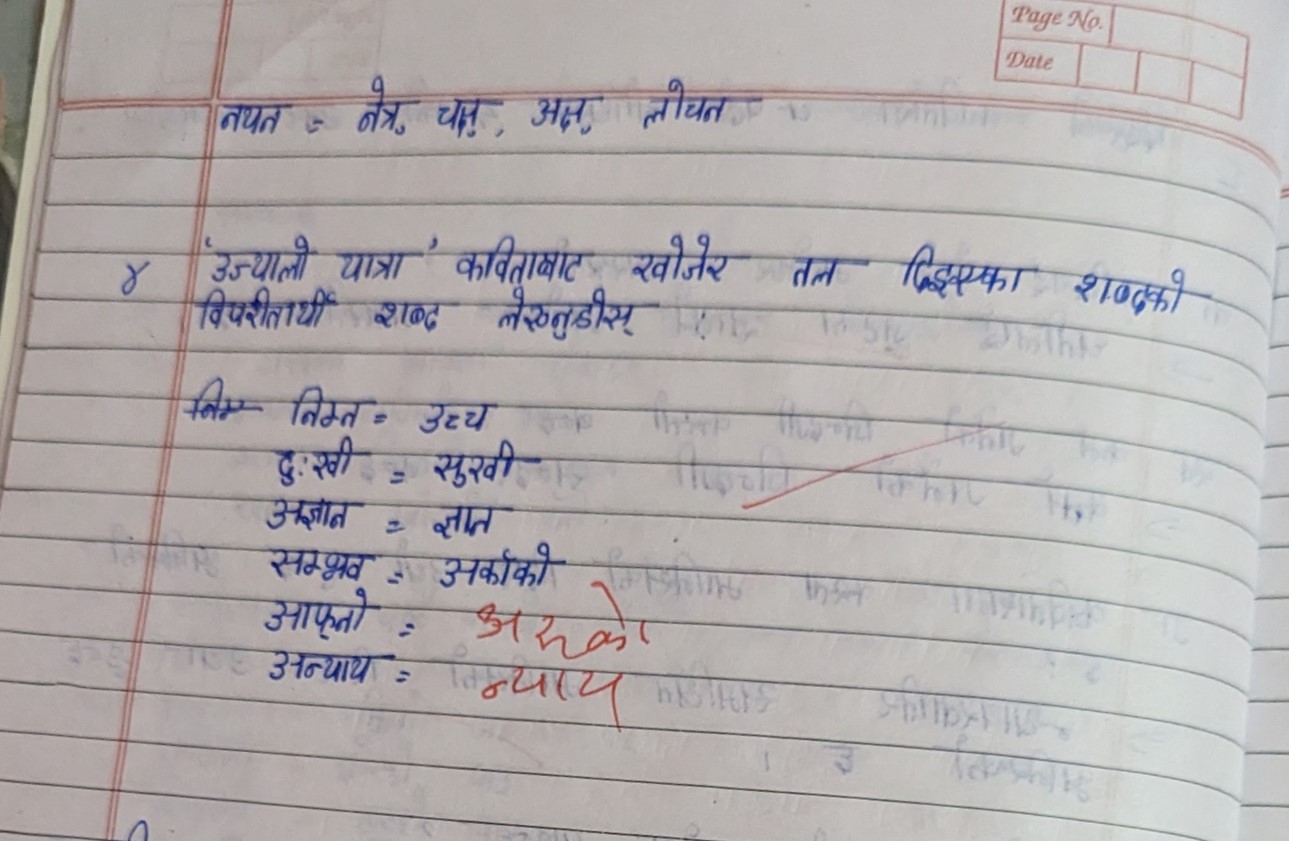 Page No.
Date
नयन = नेत्र, चक्षु, अक्ष, लोचन
४ 'उज्यालो यात्रा' कविताबाट खोजेर तल दिइएका शब्दको
विपरीतार्थी शब्द लेख्नुहोस् :
निम्न = उच्च
दुःखी = सुखी
अज्ञान = ज्ञान
सम्भव = अर्काको
आफ्नो = अरुको
अन्याय = न्याय